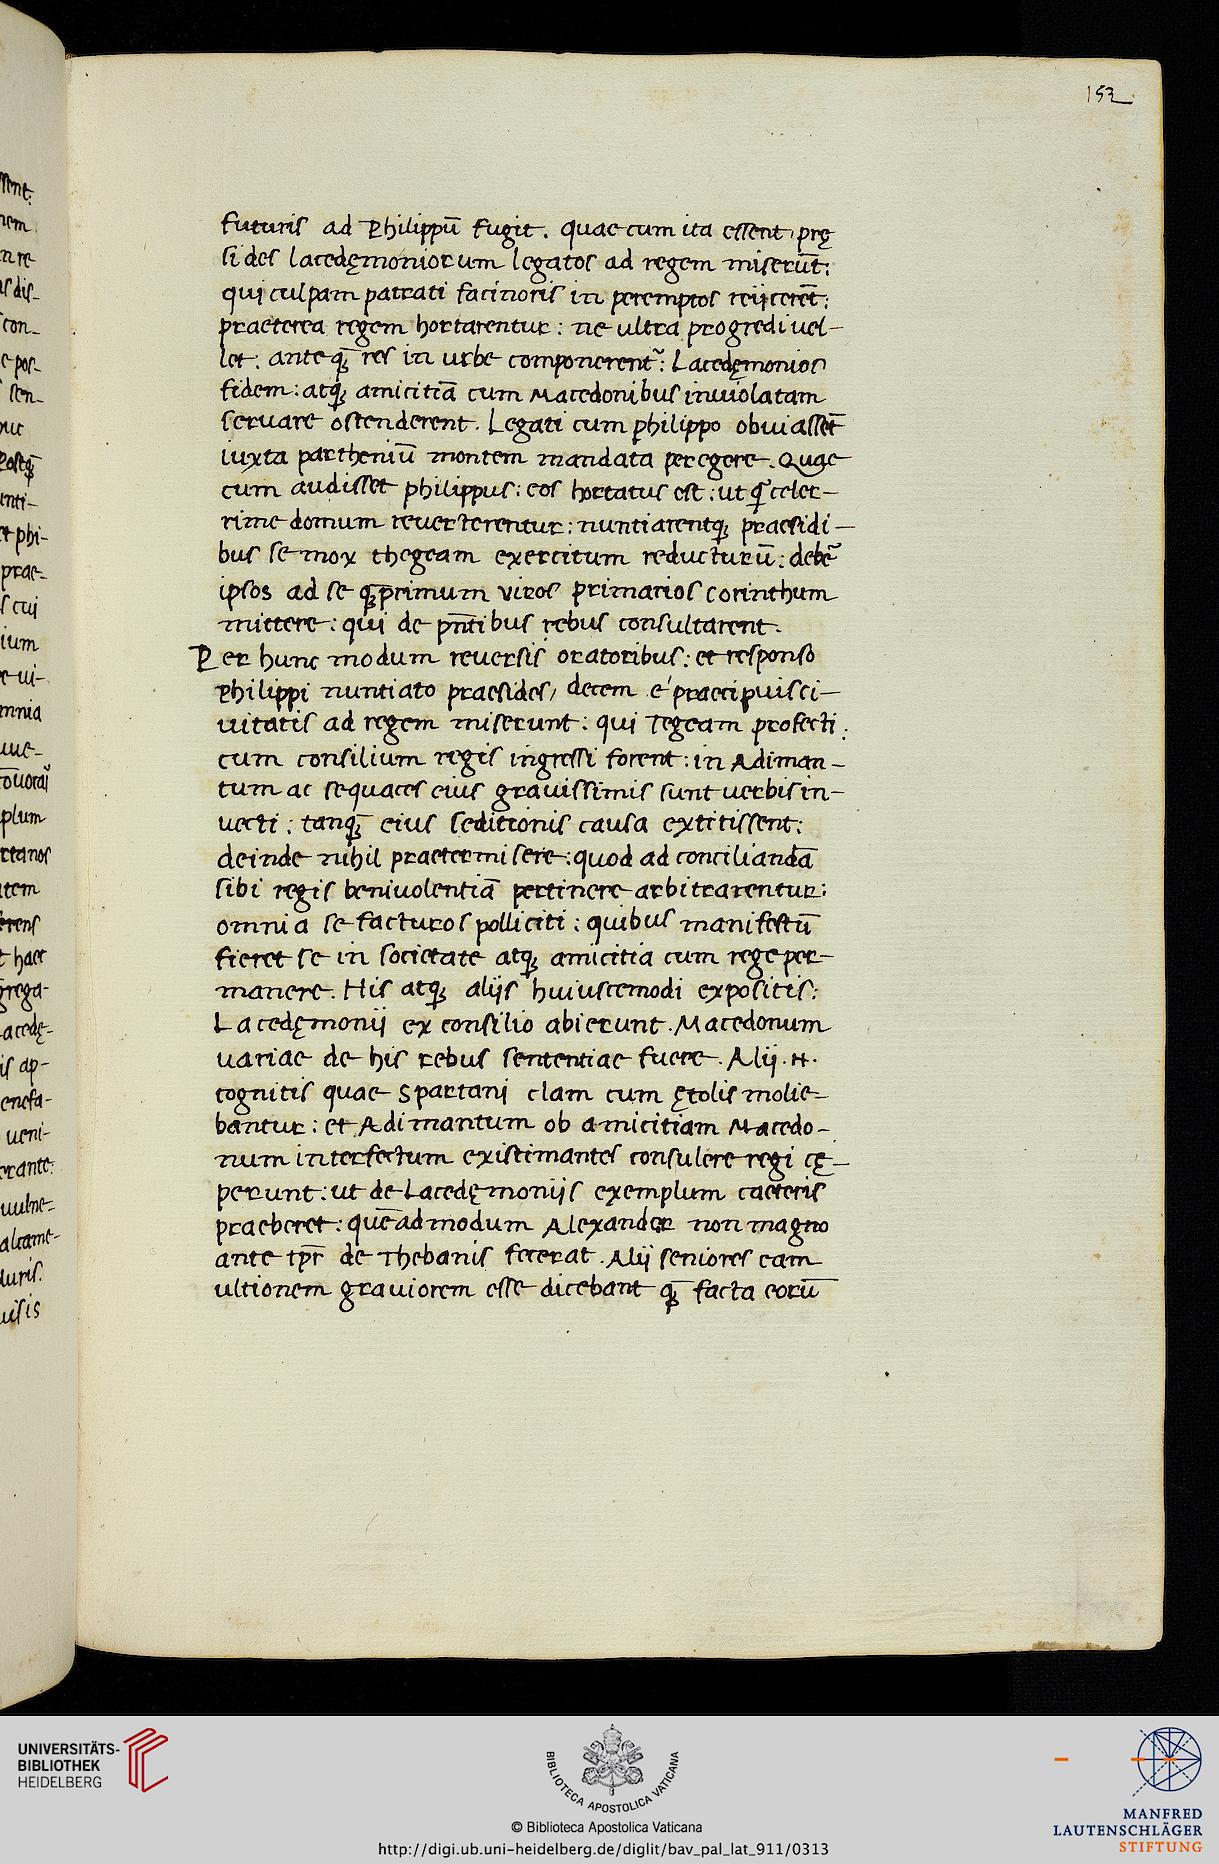 152
futuris ad Philippū fugit. quae cum ita essent, prę
sides lacedęmoniorum legatos ad regem miserūt:
qui culpam patrati facinoris in peremptos reijcerēt:
praeterea regem hortarentur: ne ultra progredi uel-
let: ante q̃ res in urbe componerent᷑: Lacedęmonios
fidem: atq; amicitiā cum Macedonibus inuiolatam
seruare ostenderent. Legati cum philippo obuiassēt
iuxta partheniū montem mandata peregere. Quae
cum audisset philippus: eos hortatus est: ut q̃ celer-
rime domum reuerterentur: nuntiarentq; praesidi-
bus se mox thegeam exercitum reducturū: debē
ipsos ad se q̃primum viros primarios corinthum
mittere: qui de pn̄tibus rebus consultarent.
Per hunc modum reuersis oratoribus: et responso
Philippi nuntiato praesides, decem é praecipuis ci-
uitatis ad regem miserunt: qui Tegeam profecti:
cum consilium regis ingressi forent: in Adiman-
tum ac sequaces eius grauissimis sunt uerbis in-
uecti: tanq̃ eius seditionis causa extitissent:
deinde nihil praetermisere: quod ad conciliandā
sibi regis beniuolentiā pertinere arbitrarentur:
omnia se facturos polliciti: quibus manifestū
fieret se in societate atq; amicitia cum rege per-
manere. His atq; alijs huiuscemodi expositis:
Lacedęmonij ex consilio abierunt. Macedonum
uariae de his rebus sententiae fuere. Alij .N.
cognitis quae Spartani clam cum ętolis molie-
bantur: et Adimantum ob amicitiam Macedo-
num interfectum existimantes consulere regi cę-
perunt: ut de Lacedęmonijs exemplum caeteris
praeberet: quēadmodum Alexander non magno
ante tp̄r de Thebanis fecerat. Alij seniores eam
ultionem grauiorem esse dicebant q̃ facta eorū
UNIVERSITÄTS-
BIBLIOTHEK
HEIDELBERG
BIBLIOTECA APOSTOLICA VATICANA
© Biblioteca Apostolica Vaticana
http://digi.ub.uni-heidelberg.de/diglit/bav_pal_lat_911/0313
MANFRED
LAUTENSCHLÄGER
STIFTUNG